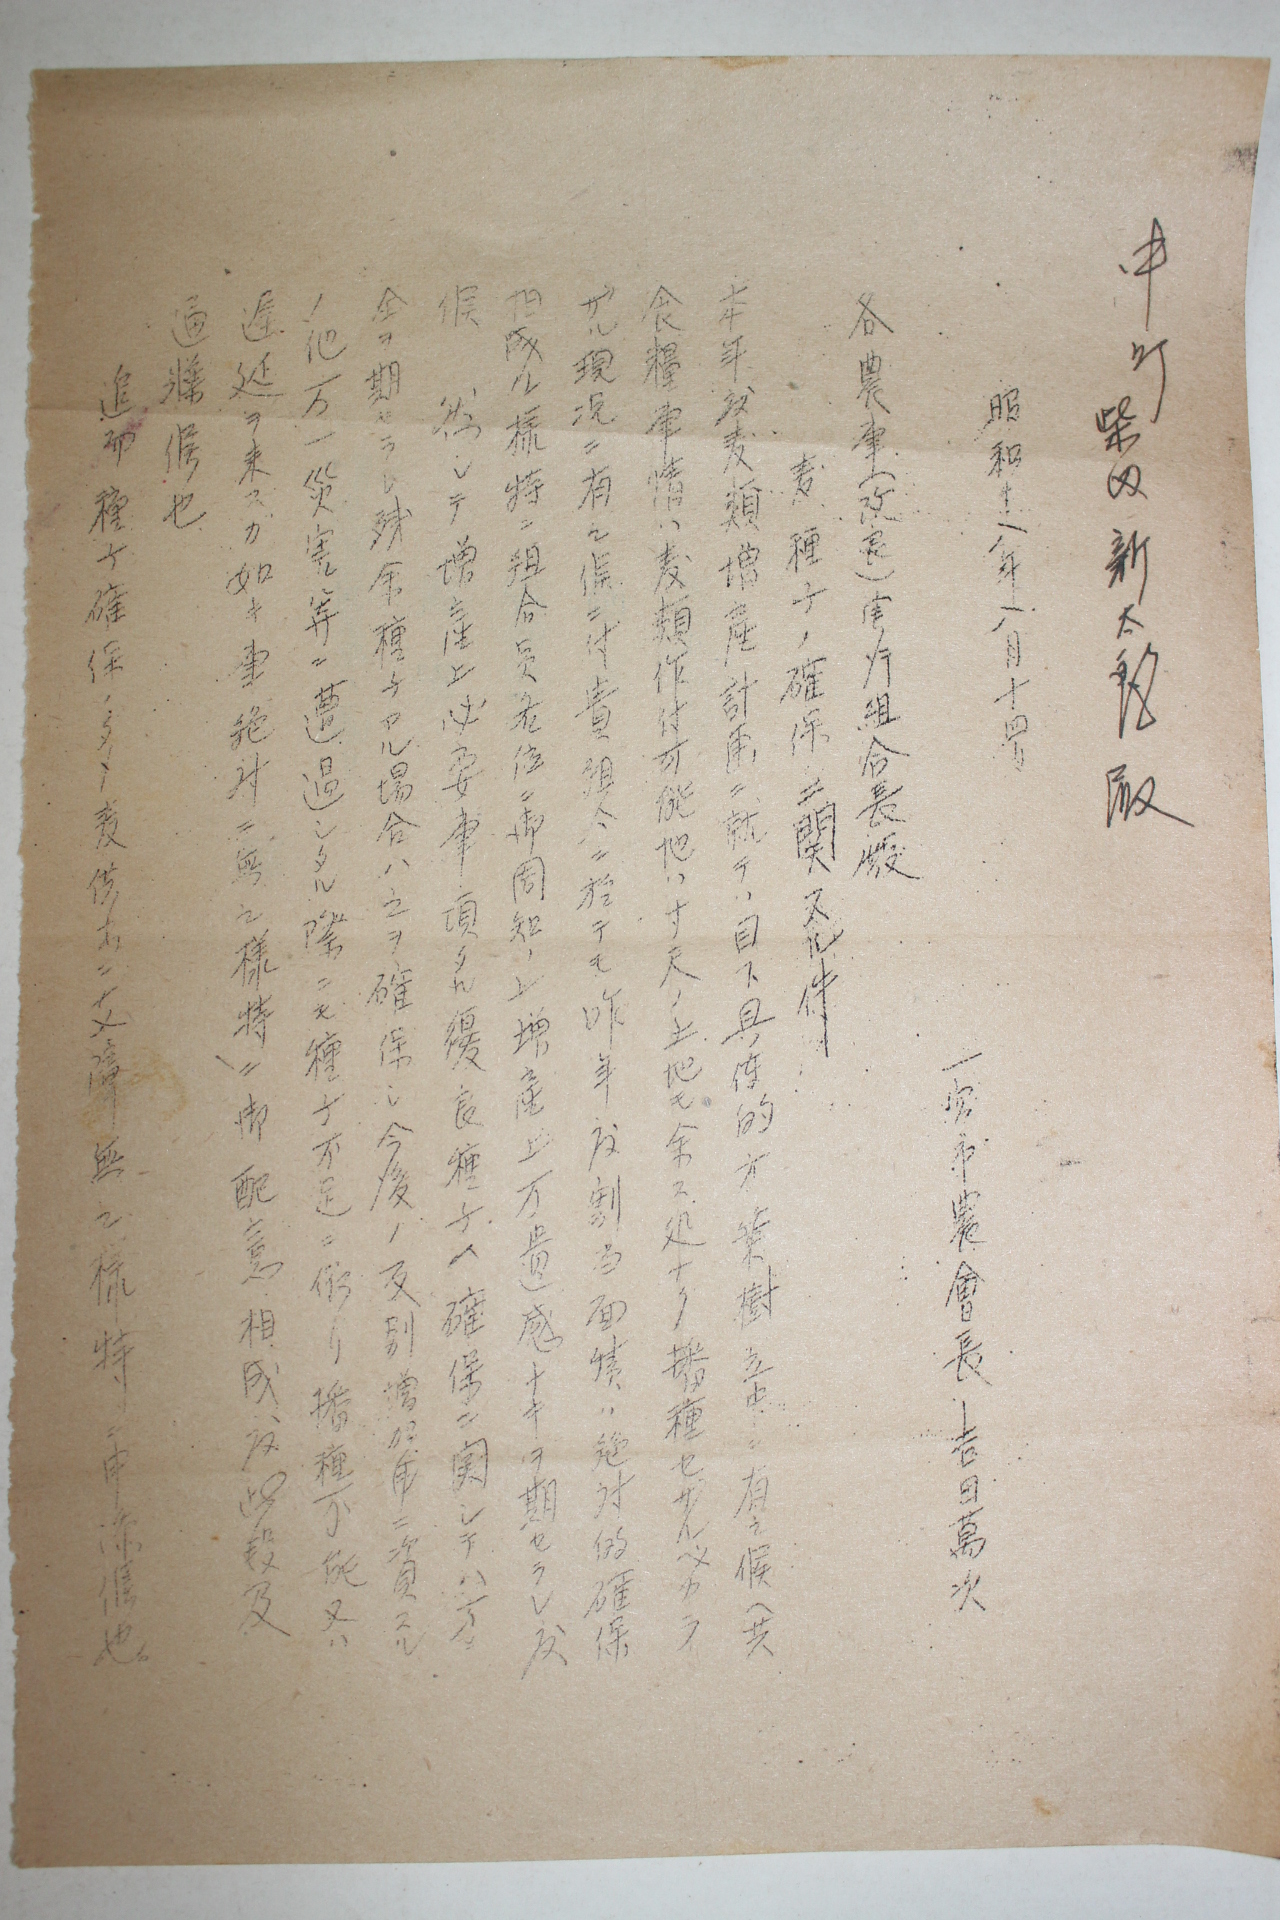 中町 柴田新太郎殿
昭和十八年八月十四日
一宮市農會長 吉田萬次
各農事(改良)実行組合長殿
麦種子ノ確保ニ関スル件
本年度麦類増産計画ニ就テハ目下具体的方策樹立中ニ有之候ヘ共
食糧事情ハ麦類作付可能地ハ寸尺ノ土地モ余ス処ナク播種セザルベカラ
ザル現況ニ有之候ニ付貴組合ニ於テモ昨年度割当面積ハ絶対的確保
相成ル様特ニ組合員各位ニ御周知ノ上増産上万遺憾ナキヲ期セラレ度
候 然シテ増産上必要事項タル優良種子ヘ確保ニ関シテハ万
全ヲ期セラレ残余種子アル場合ハ之ヲ確保シ今後ノ反別増加等ニ資スル
ノ他万一災害等ニ遭遇シタル際ニモ種子不足ニ依リ播種不能又ハ
遅延ヲ来スガ如キ事絶対ニ無之様特ニ御配意相成度此段及
通牒候也
追而種子確保ノタメ麦供出ニ支障無之様特ニ申添候也。